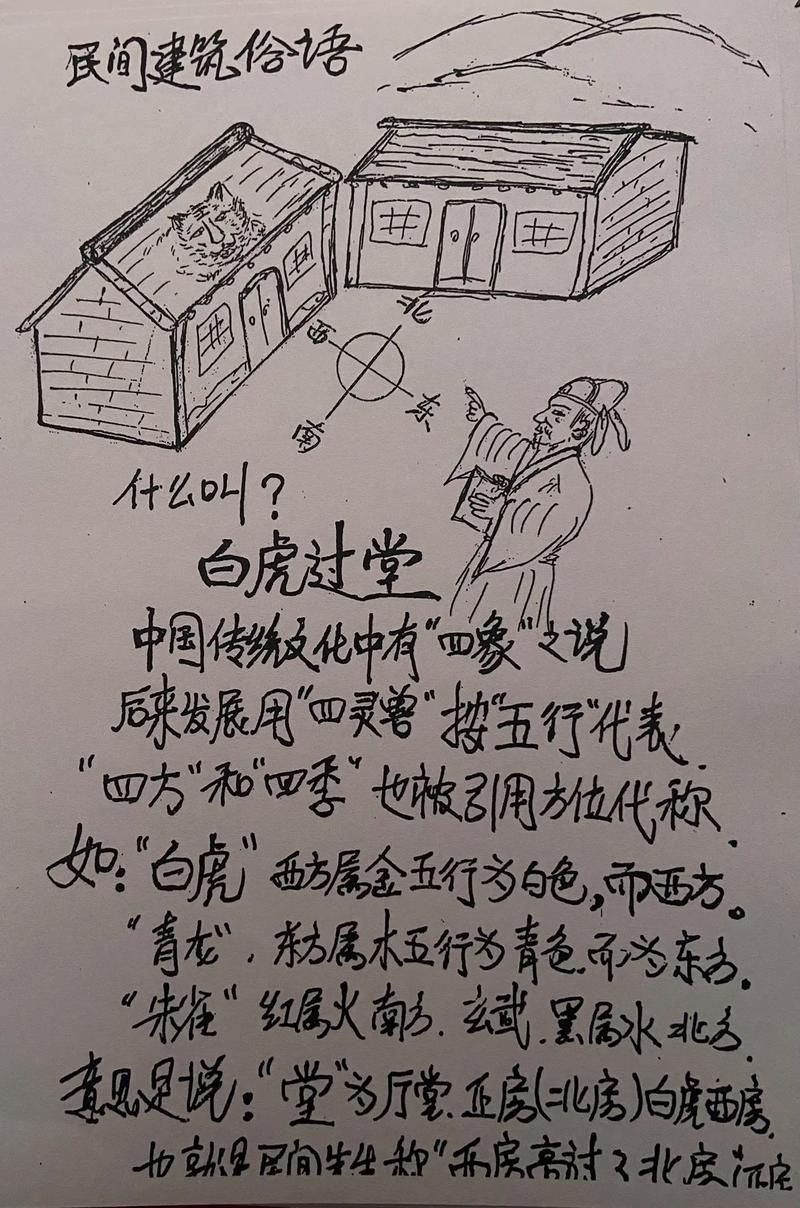 民间建筑俗语
北
西
东
南
什么叫?
白虎过堂
中国传统文化中有"四象"之说
后来发展用"四灵兽"按"五行"代表.
"四方"和"四季"也被引用方位代称.
如:"白虎"西方属金五行为白色,而西方。
"青龙".东方属木五行为青色.而为东方.
"朱雀"红属火南方.玄武.黑属水北方.
意思是说:"堂"为厅堂.正房(北房)白虎西房.
也就是民间先生称"西房高过了北房